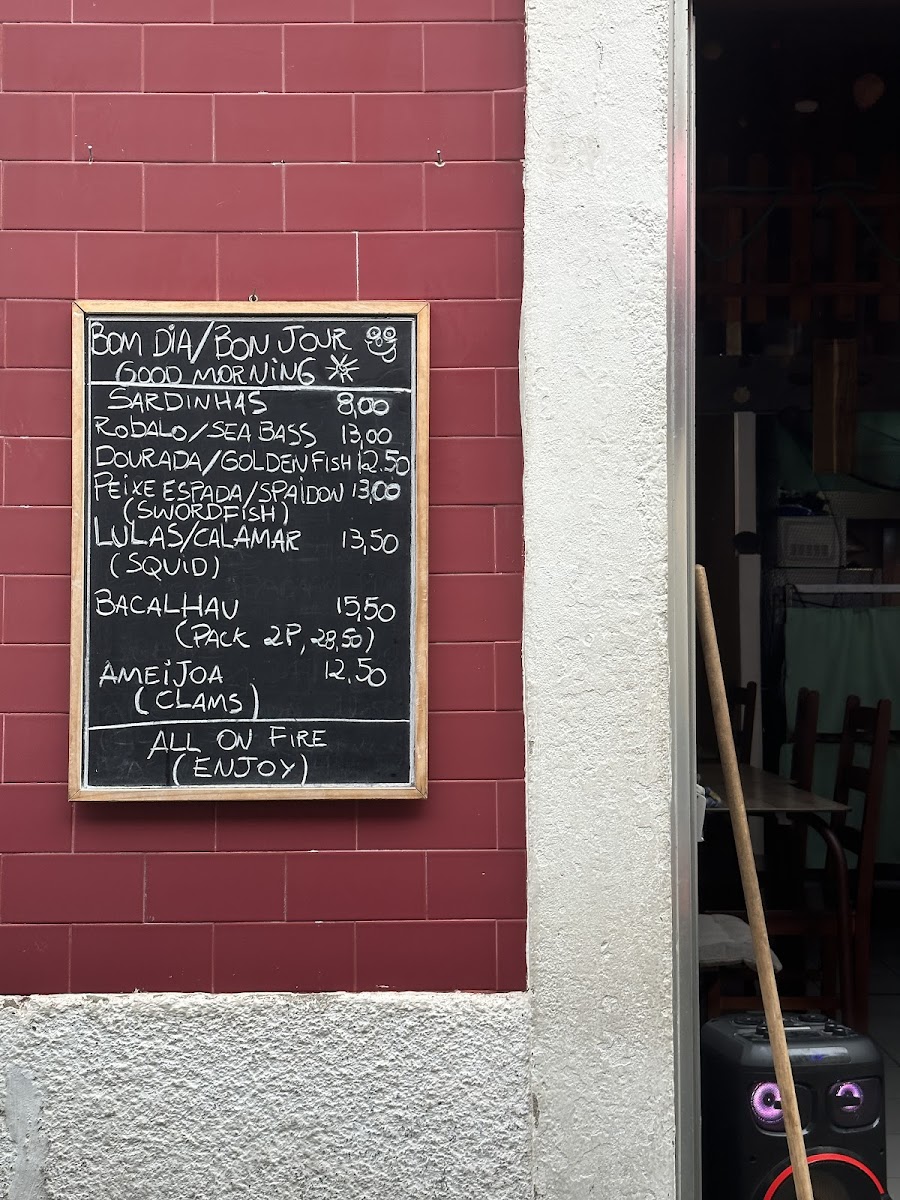 BOM DIA/BON JOUR
GOOD MORNING
SARDINHAS 8,00
ROBALO/SEA BASS 13,00
DOURADA/GOLDEN FISH 12.50
PEIXE ESPADA/SPAIDON 13,00
(SWORDFISH)
LULAS/CALAMAR 13,50
(SQUID)
BACALHAU 15,50
(PACK 2P, 28,50)
AMEIJOA 12,50
(CLAMS)
ALL ON FIRE
(ENJOY)